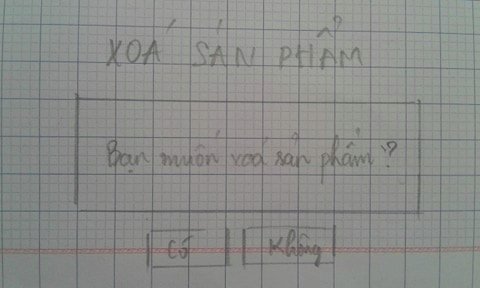 XOÁ SẢN PHẨM
Bạn muốn xoá sản phẩm?
Có Không